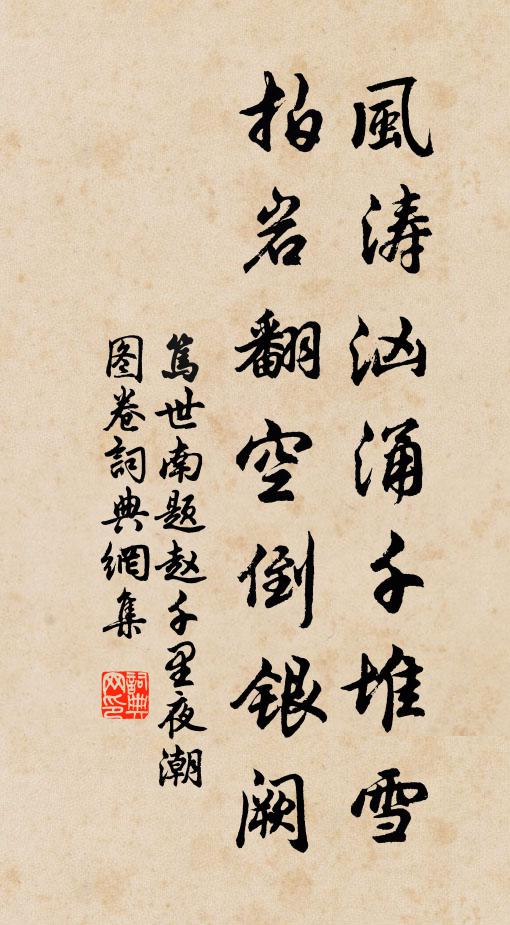 風涛汹涌千堆雪
拍岩翻空倒银阙
笃世南题赵千里夜潮
图卷詞典網集
詞典网印